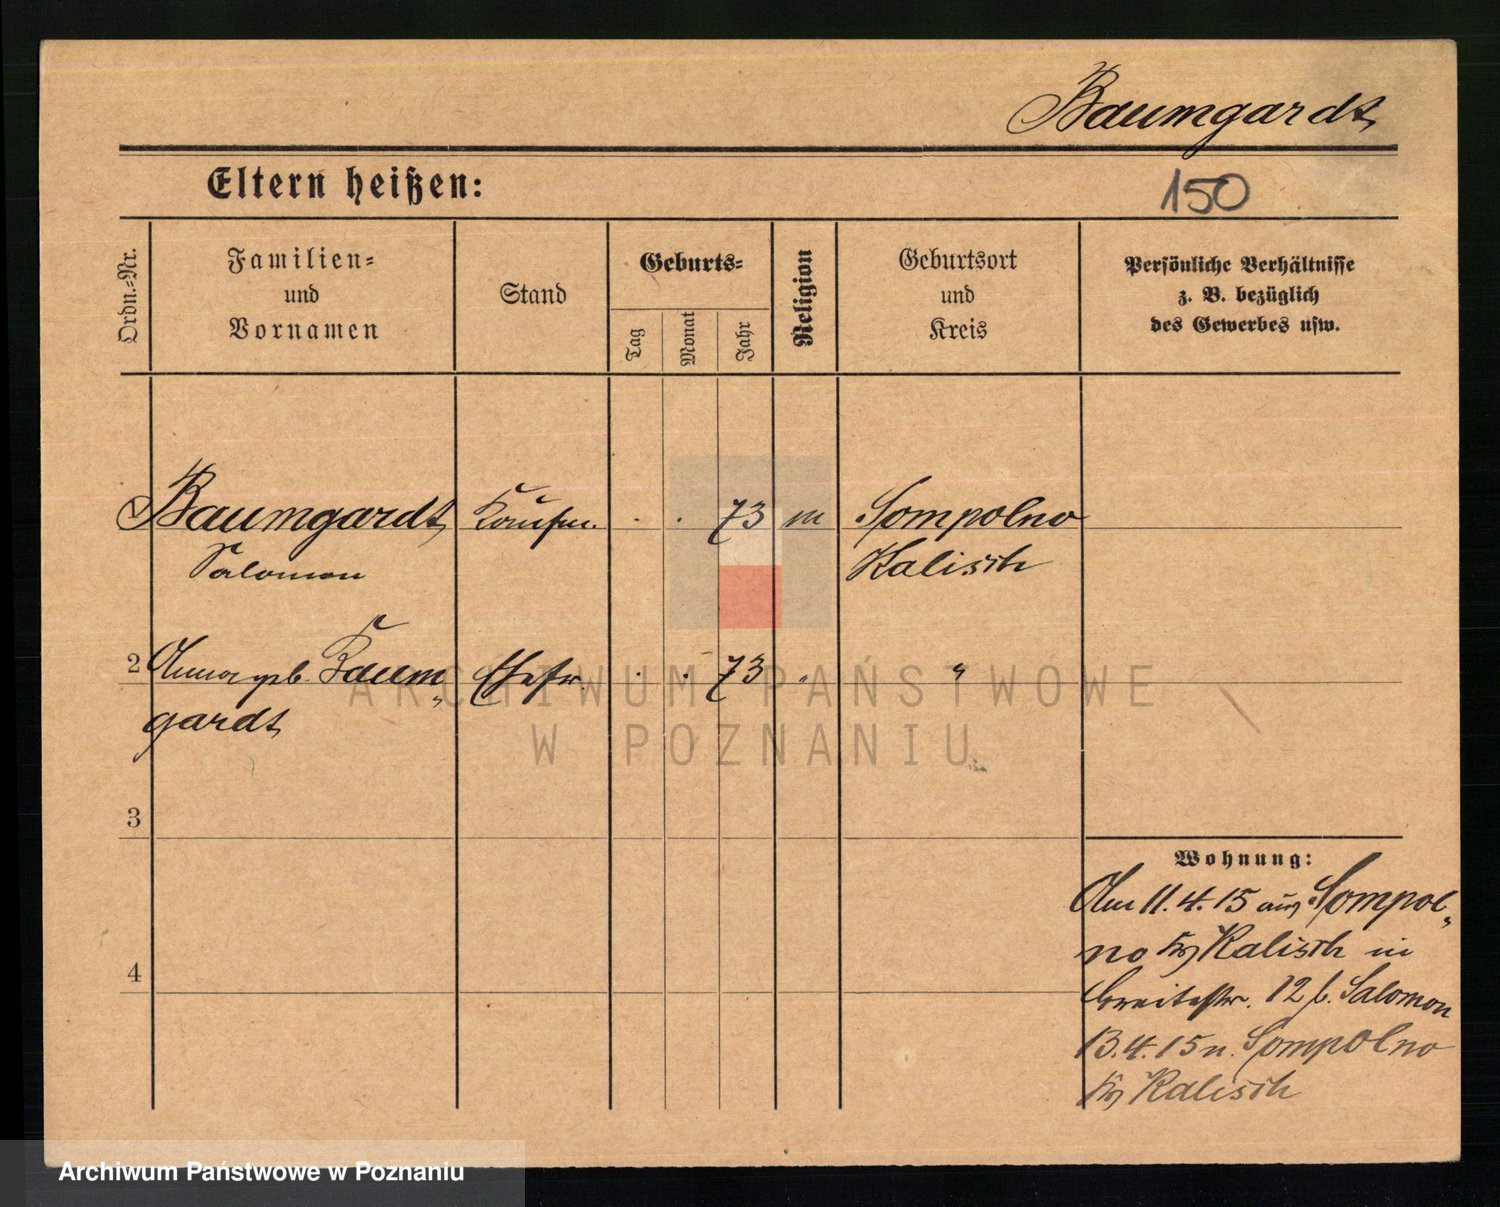 Baumgardt
Eltern heißen:
150
Ordn.-Nr.
Familien-
und
Vornamen
Stand
Geburts-
Tag
Monat
Jahr
Religion
Geburtsort
und
Kreis
Persönliche Verhältnisse
z. B. bezüglich
des Gewerbes usw.
Baumgardt Kaufm. . . 73 m Sompolno
Salomon Kalisch
2 Anna geb. Baum- Ehefr. . . 73 " "
gardt
3
4
Wohnung:
Am 11.4.15 aus Sompol-
no Krs Kalisch in
Breitestr. 12 b. Salomon
13.4.15 n. Sompolno
Krs Kalisch
ARCHIWUM PAŃSTWOWE
W POZNANIU
Archiwum Państwowe w Poznaniu